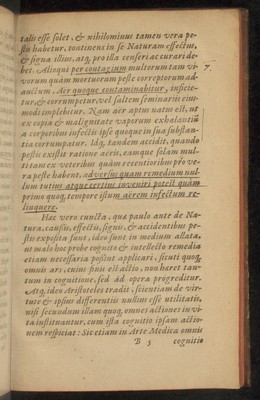 talis esse solet, & nihilominus tamen vera pe-
stis habetur, continens in se Naturam effectus,
& signa illius, atq, pro illa censeri ac curari de-
bet. Alioqui per contagium multorum tam vi-
vorum quàm mortuorum peste correptorum ad-
auctum. Aer quoque contaminabitur, inficie-
tur, & corrumpetur, vel saltem seminariis eius-
modi implebitur. Nam aer aptus natus est, ut
ex copia & malignitate vaporum exhalantiũ
à corporibus infectis ipse quoque in sua substan-
tia corrumpatur. Idq, tandem accidit, quando
pestis existit ratione aëris, eamque solam mul-
ti tam ex veteribus quàm recentioribus pro ve-
ra peste habent, adversus quam remedium nul-
lum tutius atque certius inveniri potest quàm
primo quoq, tempore istum aërem infectum re-
linquere.
Hæc vero cuncta, quæ paulo ante de Na-
tura, causis, effectis, signis, & accidentibus pe-
stis exposita sunt, ideo sunt in medium allata,
ut malo hoc probe cognito & intellecto remedia
etiam necessaria possint applicari, sicuti quoq,
omnis ars, cuius finis est actio, non hæret tan-
tum in cognitione, sed ad opera progreditur.
Atq, ideo Aristoteles tradit, scientiam de vir-
tute & ipsius differentiis nullius esse utilitatis,
nisi secundum illam quoq, omnes actiones in vi-
ta instituantur, cum ista cognitio ipsam actio-
nem respiciat: Sic etiam in Arte Medica omnis
B 5 cognitio
7